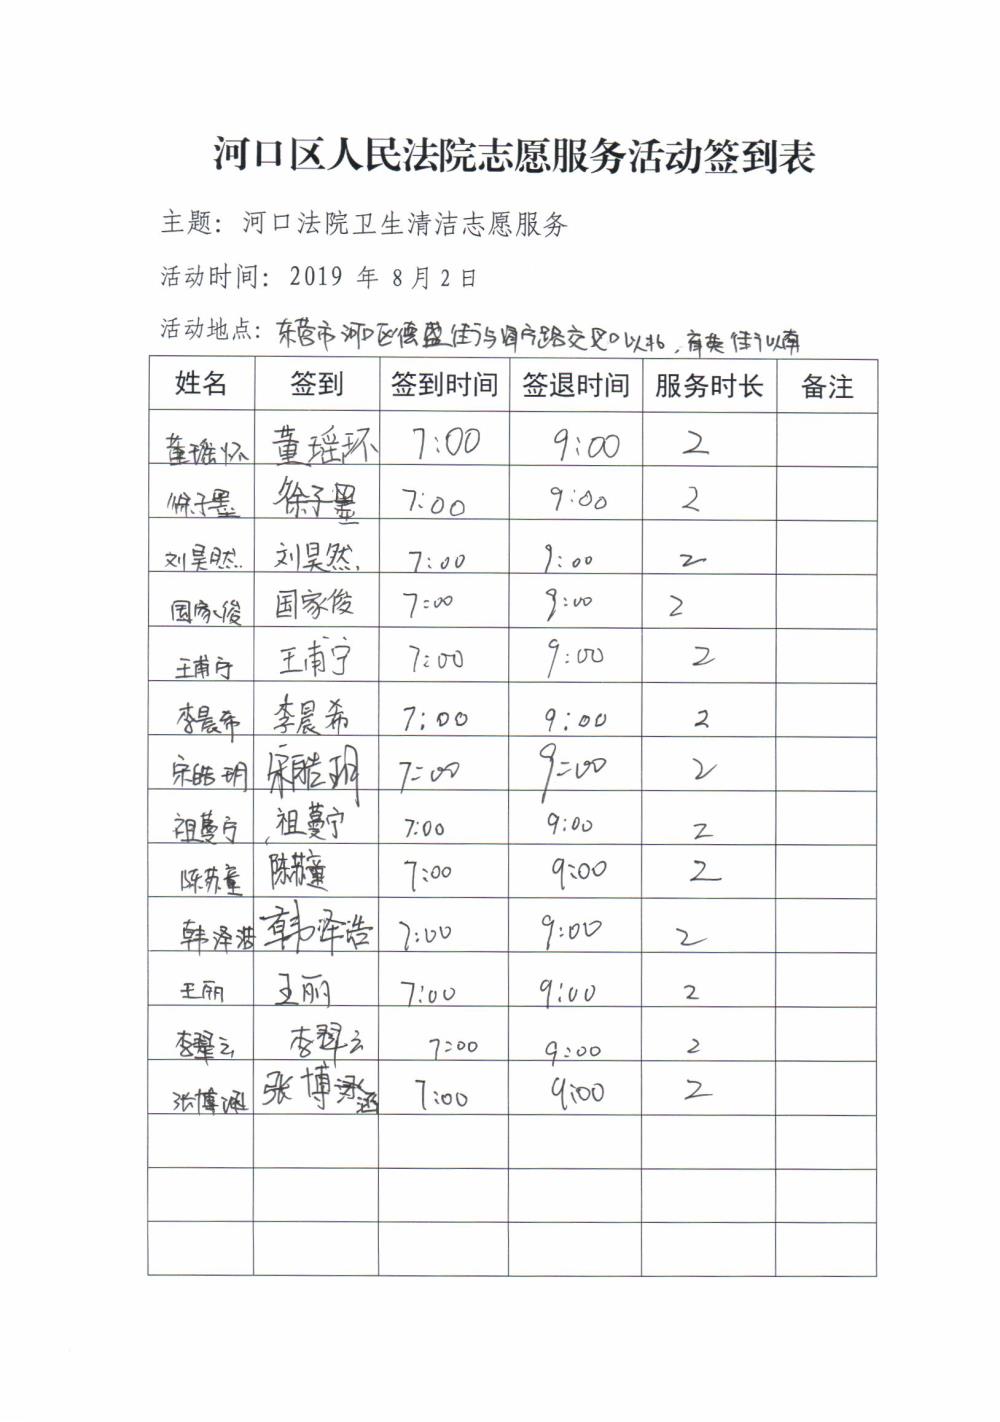 河口区人民法院志愿服务活动签到表
主题：河口法院卫生清洁志愿服务
活动时间：2019 年 8月2日
活动地点：东营市河口区德盛街与 宁路交叉口以北, 街以南
姓名 签到 签到时间 签退时间 服务时长 备注
董瑶怀 董瑶环 7:00 9:00 2
徐子墨 徐子墨 7:00 9:00 2
刘昊然. 刘昊然. 7:00 9:00 2
国家俊 国家俊 7:00 9:00 2
王甫宁 王甫宁 7:00 9:00 2
李晨希 李晨希 7:00 9:00 2
宋皓玥 宋皓玥 7:00 9:00 2
祖蔓宁 祖蔓宁 7:00 9:00 2
陈苏童 陈苏童 7:00 9:00 2
韩泽浩 韩泽浩 7:00 9:00 2
王丽 王丽 7:00 9:00 2
李翠云 李翠云 7:00 9:00 2
张博涵 张博涵 7:00 9:00 2